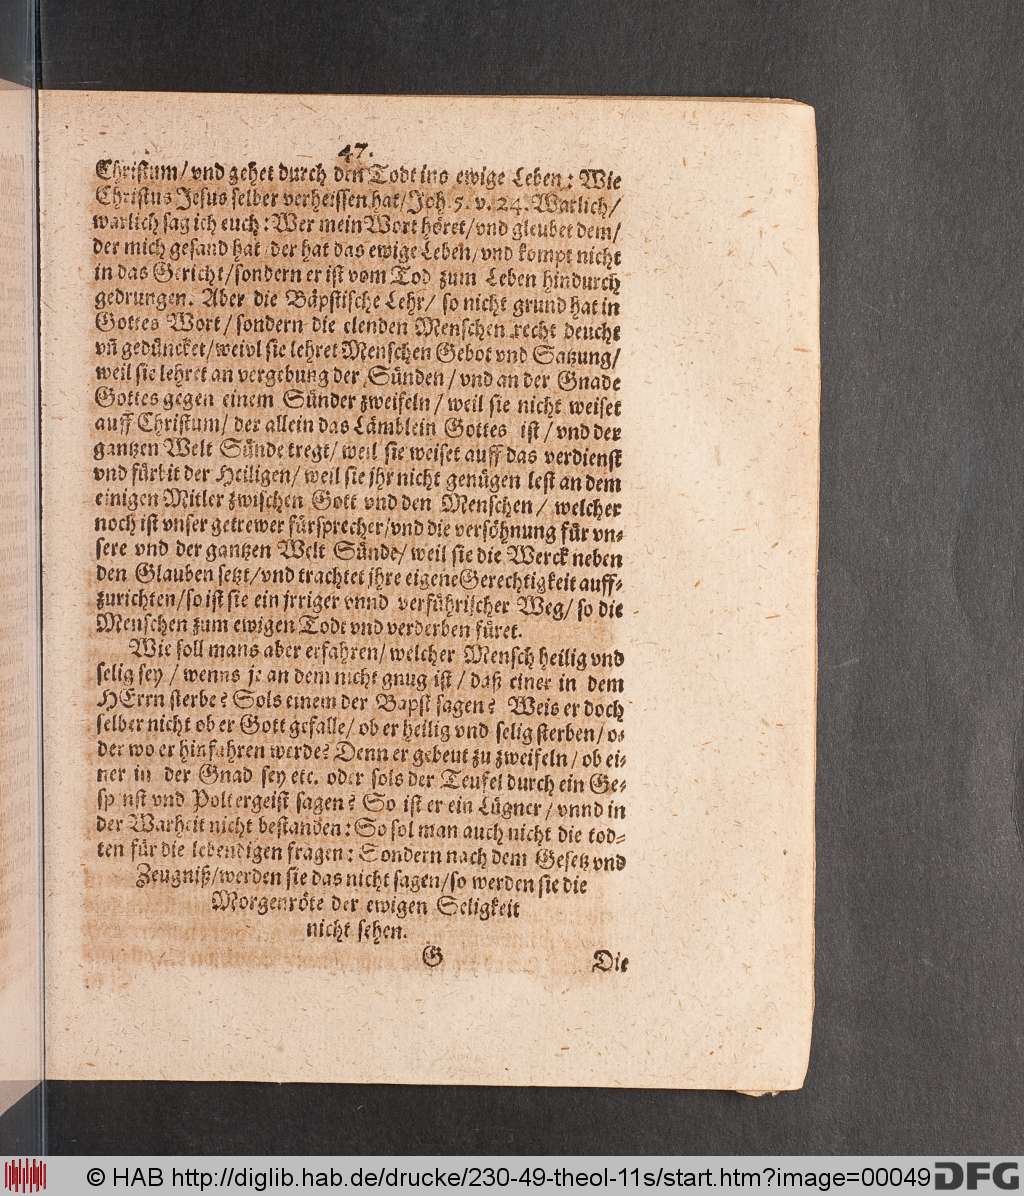 47.
Christum/ vnd gehet durch den Todt ins ewige Leben: Wie
Christus Jesus selber verheissen hat/ Joh. 5. v. 24. Warlich/
warlich sag ich euch: Wer mein Wort höret/ vnd gleubet dem/
der mich gesand hat/ der hat das ewige Leben/ vnd kompt nicht
in das Gericht/ sondern er ist vom Tod zum Leben hindurch
gedrungen. Aber die Bäpstische Lehr/ so nicht grund hat in
Gottes Wort/ sondern die elenden Menschen recht deucht
vñ gedüncket/ weivl sie lehret Menschen Gebot vnd Satzung/
weil sie lehret an vergebung der Sünden/ vnd an der Gnade
Gottes gegen einem Sünder zweifeln/ weil sie nicht weiset
auff Christum/ der allein das Lämblein Gottes ist/ vnd der
gantzen Welt Sünde tregt/ weil sie weiset auff das verdienst
vnd fürbit der Heiligen/ weil sie jhr nicht genügen lest an dem
einigen Mitler zwischen Gott vnd den Menschen/ welcher
noch ist vnser getrewer fürsprecher/ vnd die versöhnung für vn-
sere vnd der gantzen Welt Sünde/ weil sie die Werck neben
den Glauben setzt/ vnd trachtet jhre eigene Gerechtigkeit auff-
zurichten/ so ist sie ein jrriger vnnd verführischer Weg/ so die
Menschen zum ewigen Todt vnd verderben füret.
Wie soll mans aber erfahren/ welcher Mensch heilig vnd
selig sey/ wenns je an dem nicht gnug ist/ daß einer in dem
HErrn sterbe? Sols einem der Bapst sagen? Weis er doch
selber nicht ob er Gott gefalle/ ob er heilig vnd selig sterben/ o-
der wo er hinfahren werde? Denn er gebeut zu zweifeln/ ob ei-
ner in der Gnad sey etc. oder sols der Teufel durch ein Ge-
spenst vnd Poltergeist sagen? So ist er ein Lügner/ vnnd in
der Warheit nicht bestanden: So sol man auch nicht die tod-
ten für die lebendigen fragen: Sondern nach dem Gesetz vnd
Zeugniß/ werden sie das nicht sagen/ so werden sie die
Morgenröte der ewigen Seligkeit
nicht sehen.
G Die
© HAB http://diglib.hab.de/drucke/230-49-theol-11s/start.htm?image=00049
DFG